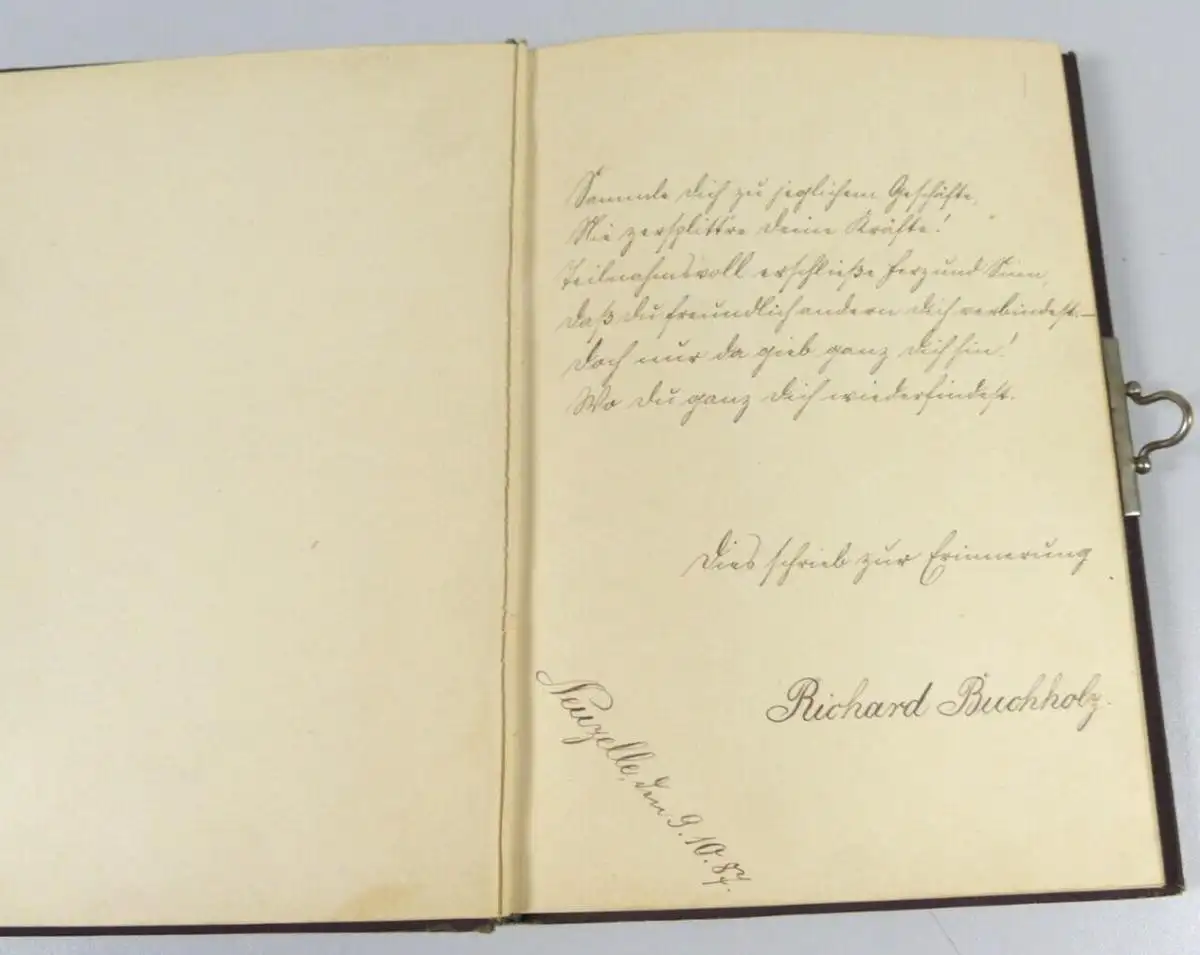 Sammle dich zu jeglichem Geschäfte,
Nie zersplittre deine Kräfte!
Teilnahmsvoll erschließe Herz und Sinn,
daß du freundlich andern dich verbindest. –
Doch nur da gieb ganz dich hin!
Wo du ganz dich wiederfindest.
Dies schrieb zur Erinnerung
Richard Buchholz.
Neuzelle, den 9.10.87.